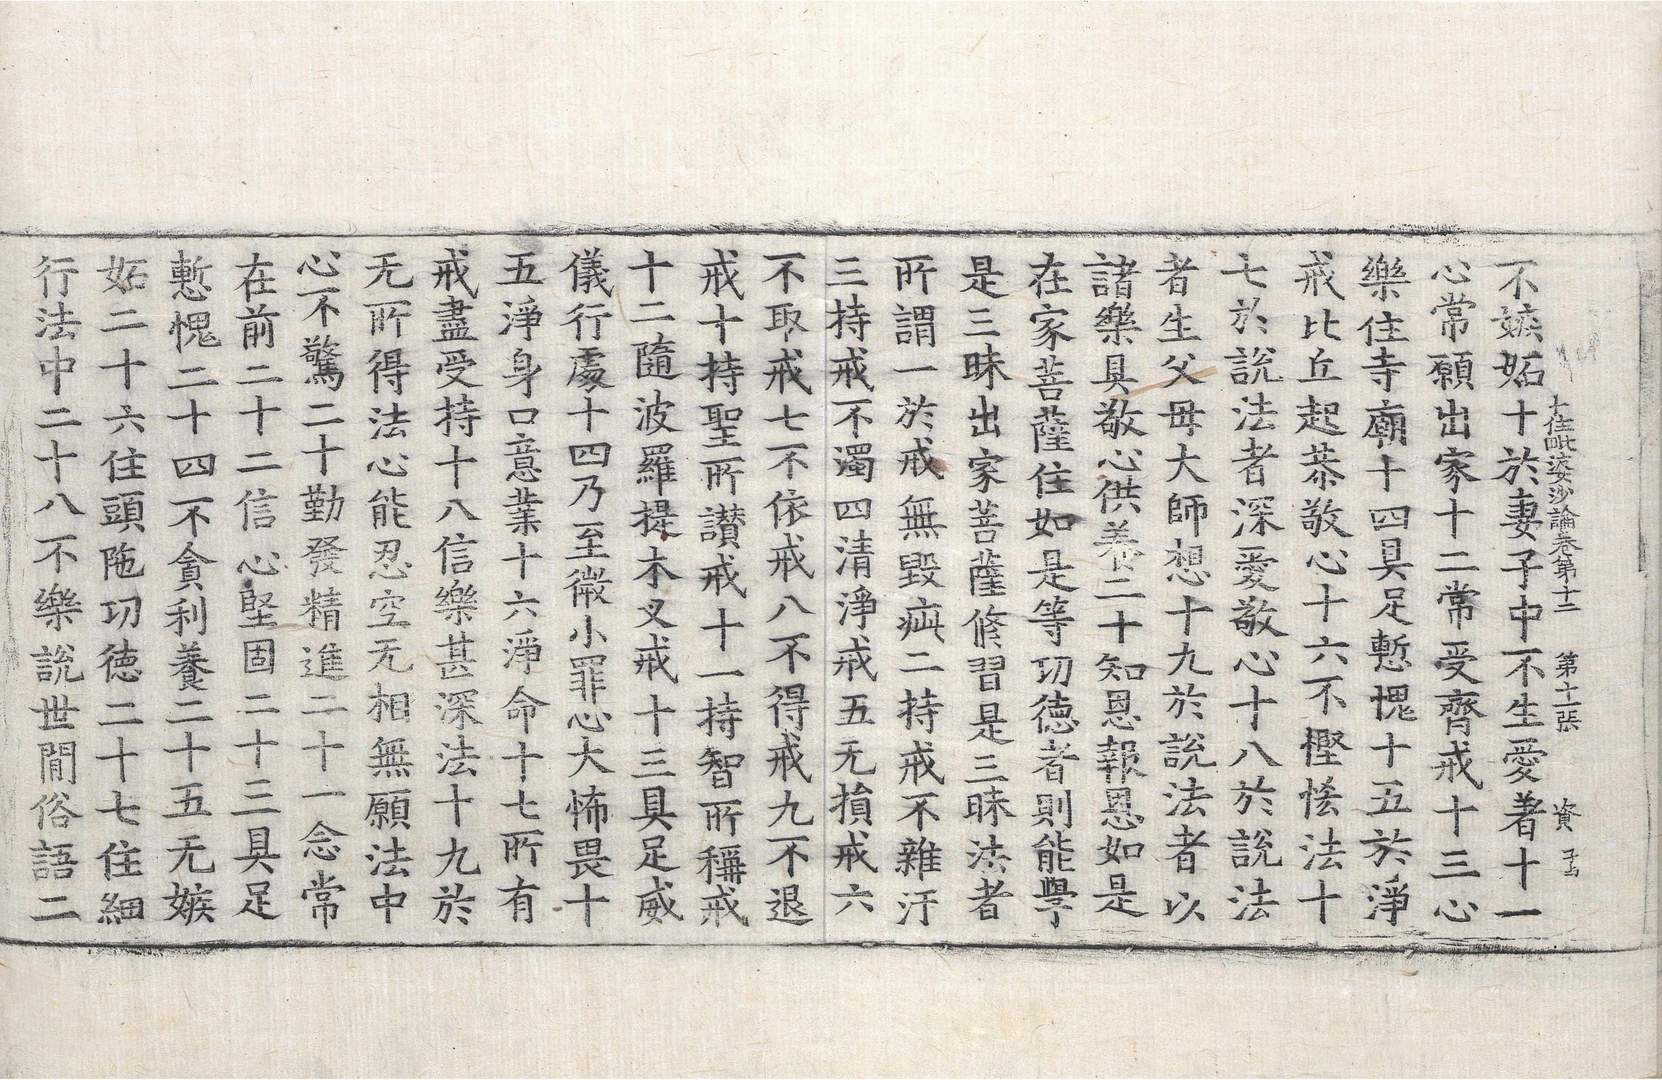 十住毗婆沙論卷第十二　第十二張　資
不嫉妬十於妻子中不生愛著十一
心常願出家十二常受齊戒十三心
樂住寺廟十四具足慙愧十五於淨
戒比丘起恭敬心十六不慳悋法十
七於說法者深愛敬心十八於說法
者生父母大師想十九於說法者以
諸樂具敬心供養二十知恩報恩如是
在家菩薩住如是等功德者則能學
是三昧出家菩薩修習是三昧法者
所謂一於戒無毀疵二持戒不雜汙
三持戒不濁四清淨戒五无損戒六
不取戒七不依戒八不得戒九不退
戒十持聖所讃戒十一持智所稱戒
十二隨波羅提木叉戒十三具足威
儀行處十四乃至微小罪心大怖畏十
五淨身口意業十六淨命十七所有
戒盡受持十八信樂甚深法十九於
无所得法心能忍空无相無願法中
心不驚二十勤發精進二十一念常
在前二十二信心堅固二十三具足
慙愧二十四不貪利養二十五无嫉
妬二十六住頭陁功德二十七住細
行法中二十八不樂說世閒俗語二